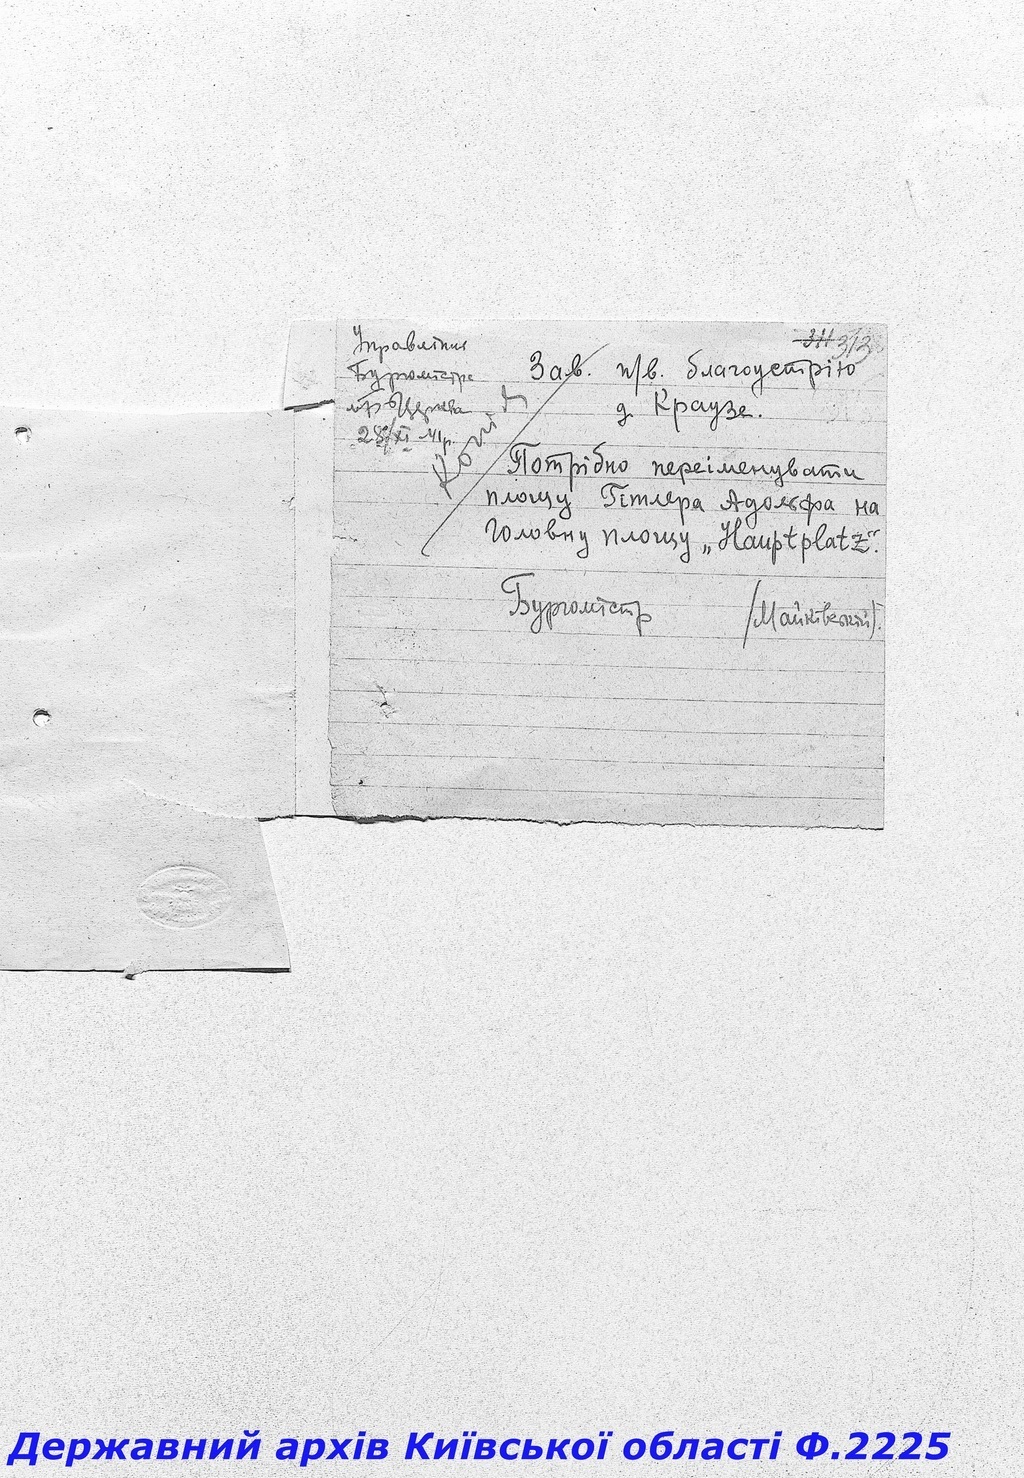 Управління
Бургомістра
м. Б Церква
28/XI 41 р.
Копія
311 313
Зав. п/в. благоустрію
д. Краузе.
Потрібно переіменувати
площу Гітлера Адольфа на
Головну площу „Hauptplatz“.
Бургомістр /Майківський/.
Державний архів Київської області Ф.2225